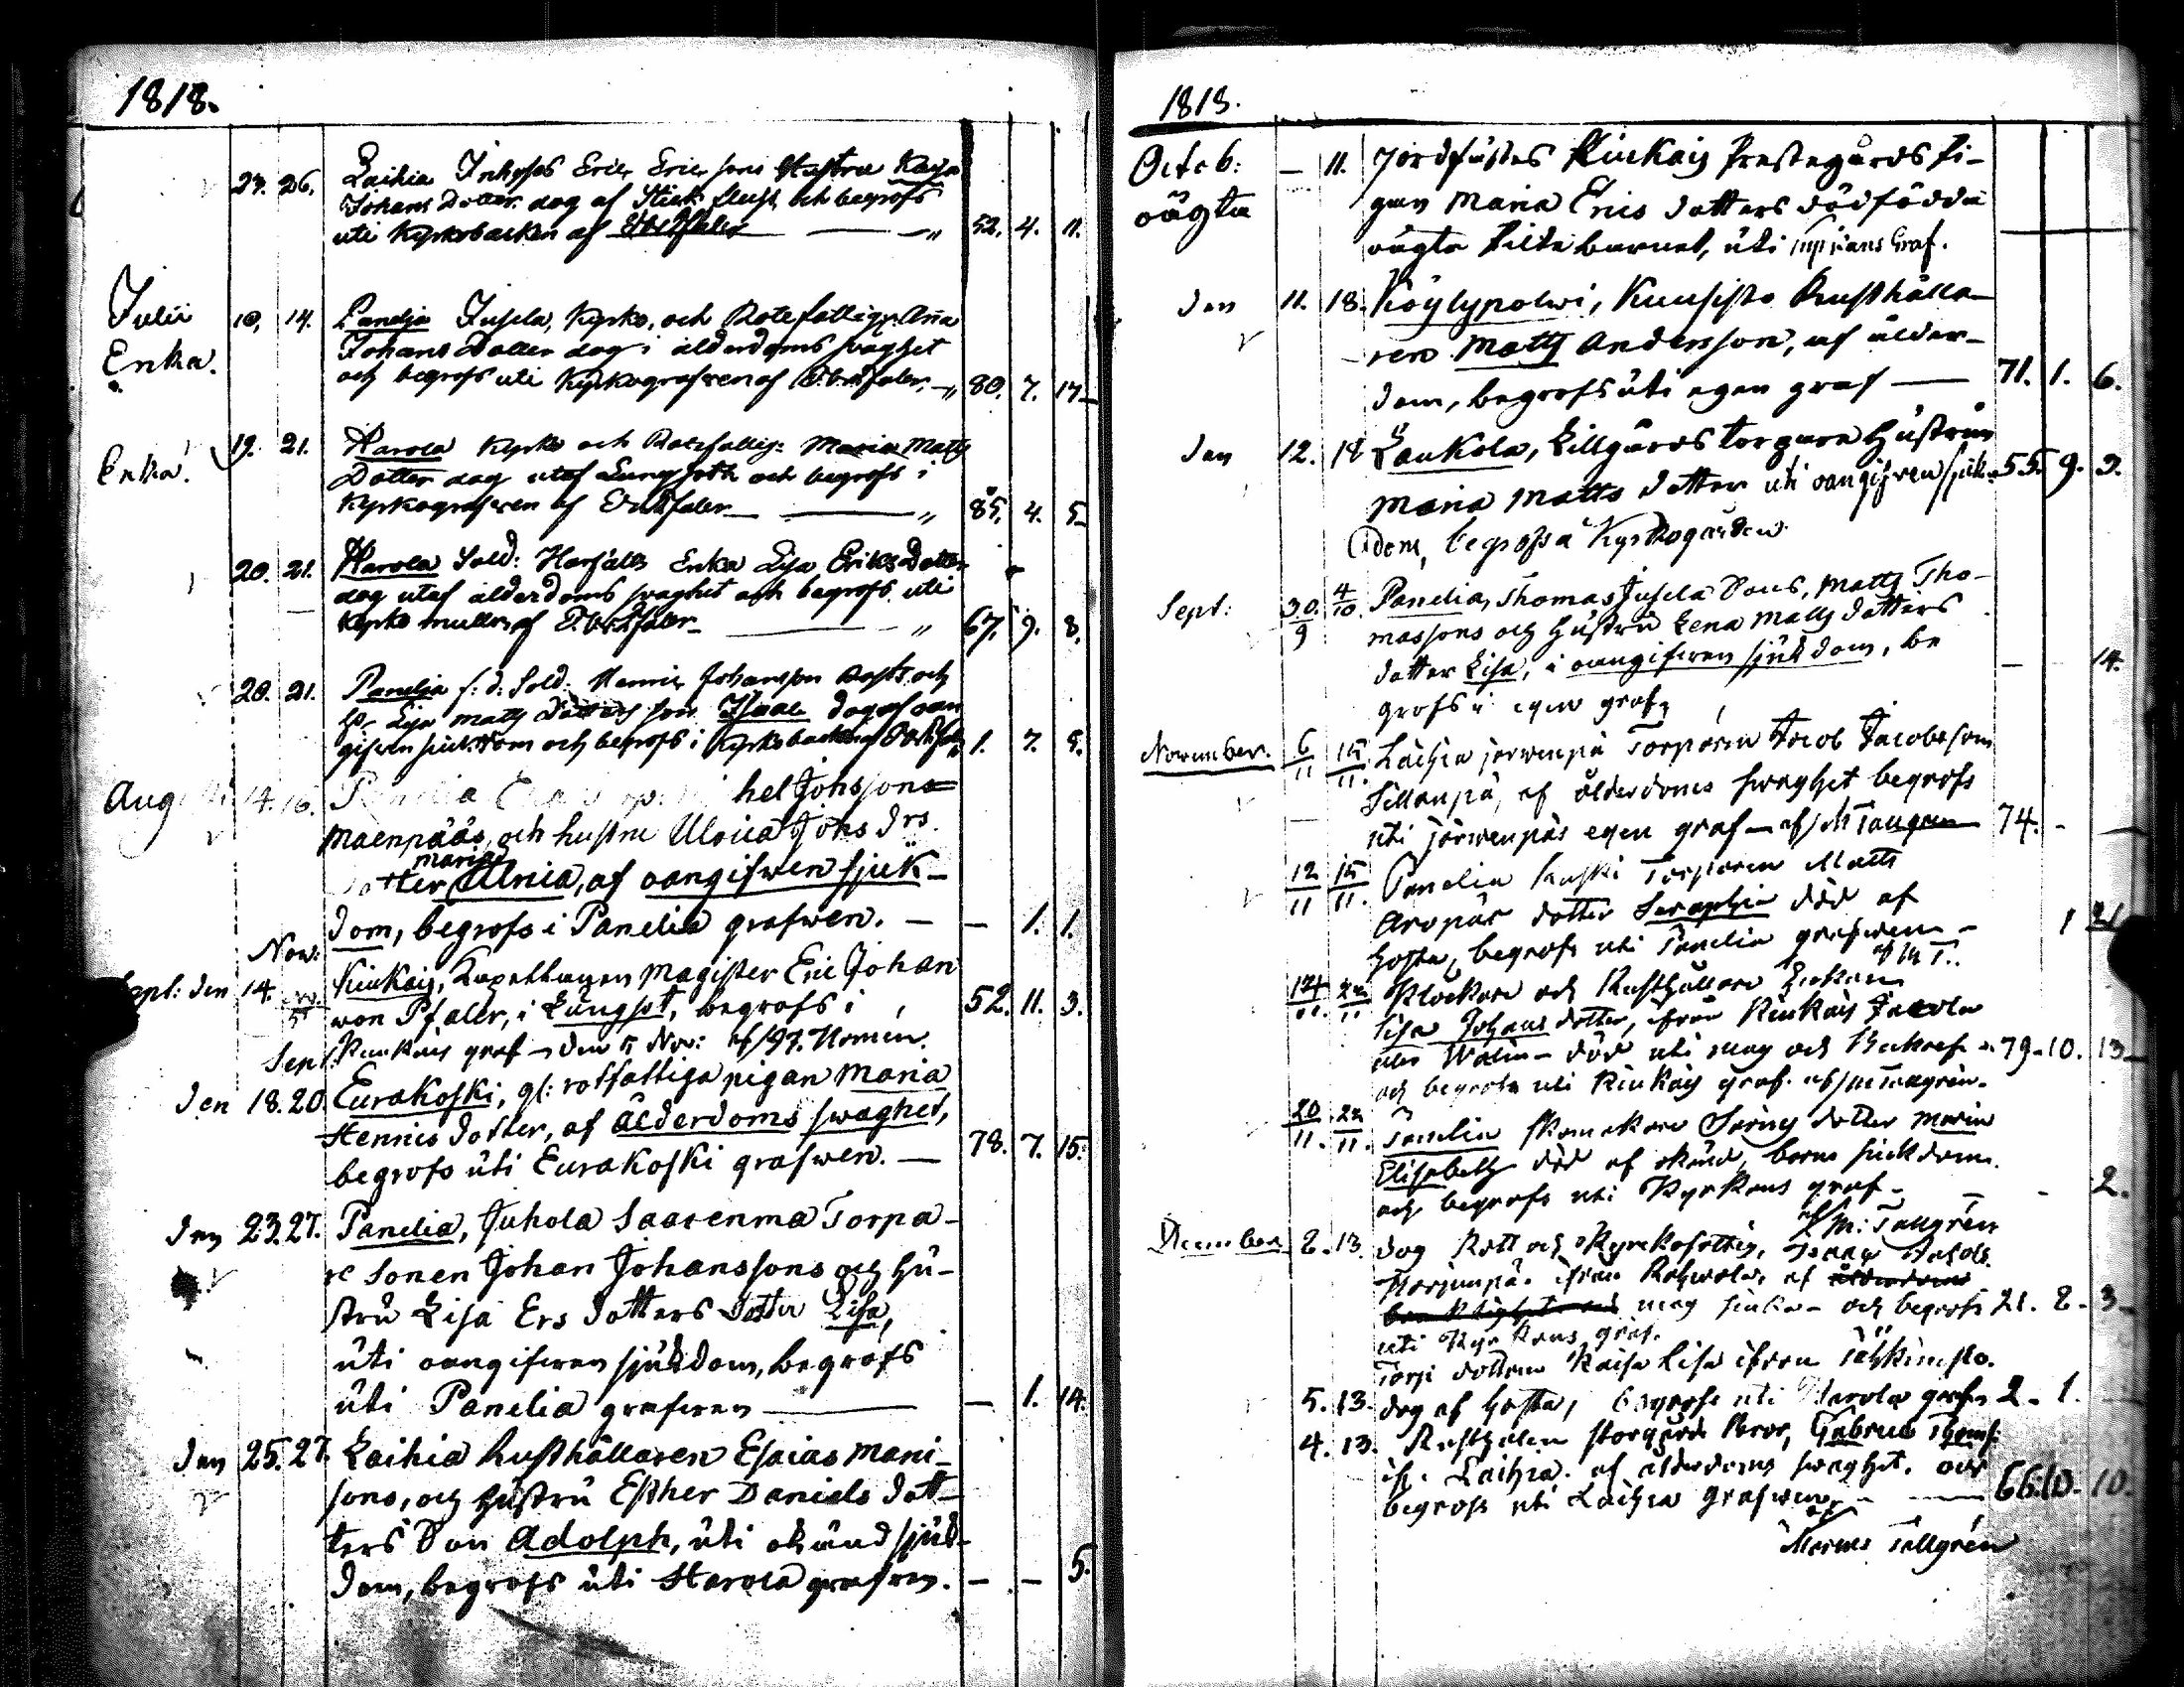 1818.
23. 26. Laihia Erics Eric sons Hustru Kaija
Johans Dotter dog af Stick och begrofs
uti Kyrkobacken af 52. 4. 11.
Julii 10. 14. Panelia Jusela, Kyrko, och Rotefattigx Aña
Enka. Johans Dotter dog i ålderdoms svaghet
och begrofs uti Kyrkografven af 80. 7. 17
19. 21. Harola Kyrko och Rotefattig: Maria Matts
Enka! Dotter dog utaf Lungsot och begrofs i
Kyrkografven af 85. 4. 5
20. 21. Harola Sold: Enka Lisa Eriks Dotter
dog utaf ålderdoms svaghet och begrofs uti
Kyrko mullen af 67. 9. 8.
20. 21. Panelia f: d: Sold. Henric Johansson och
Lisa Matts Dotters son Isaac dog af oan
gifven siukdom och begrofs i Kyrkobacken af 1. 7. 9.
Aug 14. 16. Panelia hel Johssons
Maenpääs, och hustru Ulrica Johs drs
maria
dotter Ulrica, af oangifwen sjuk-
dom, begrofs i Panelia grafwen. — — 1. 1.
Nov:
Sept: den 14. Kiukais, Kapellanen Magister Eric Johan
von Pfaler, i Lungsot, begrofs i 52. 11. 3.
Kiukais graf — den 5 Nov: af
Sept.
den 18. 20. Eurakoski, gl: rotfattiga pigan Maria
Hennics dotter, af ålderdoms swaghet,
begrofs uti Eurakoski grafwen. — 78. 7. 15.
den 23. 27. Panelia, Juhola Saarenma Torpa-
re Sonen Johan Johanssons och Hu-
stru Lisa Ers dotters dotter Lisa,
uti oangifwen sjukdom, begrofs
uti Panelia grafwen — — 1. 14.
den 25. 27. Laihia Rusthållaren Esaias Mani-
sons, och Hustru Esther Daniels dott-
ters Son Adolph, uti okänd sjuk-
dom, begrofs uti Harola grafwen. — — 5.
1818.
Octob: — 11. Jordfästes Kiukais Prestegårds Pi-
oägta gan Maria Erics dotters dödfödda
oägta barnet, uti Graf.
den 11. 18. Köylypolwi, Kuusisto Rusthålla-
ren Matts Andersson, af ålder-
dom, begrofs uti egen graf — 71. 1. 6.
den 12. 18 Laukola, Lillgårds torpare Hustrun
Maria Matts dotter uti oangifwen sjuk- 55. 9. 9.
dom, begrofs å Kyrkogården
Sept: 30/9 4/10 Panelia, Thomas Jusela Sons, Matts Tho-
massons och Hustru Lena Matts dotters
dotter Lisa, i oangifwen sjukdom, be — 14.
grofs i egen graf
November. 6/11 15/11. Laihia järwenpä Torparen Jacob Jacobsson
Sillanpä, af ålderdoms swaghet begrofs
uti järwenpäs egen graf — af 74. -
12/11 15/11. Panelia Torparen Matts
dotter Seraphia död af
Hosta, begrofs uti Panelia grafwen — 1 21
af M T.
14/11 22/11 Klockare och Rusthållare Enkan
Lisa Johans dotter, ifrån Kiukais
Walin — död uti mag och 79. 10. 13
och begrofs uti Kiukais graf. af M Tallgrén.
20/11. 22/11. Panelia Skomakare dotter Maria
Elisabeth död af okänd, barns siukdom.
och begrofs uti Kyrkans graf - — - 2.
af M: Tallgrén
December 2. 13. dog Rott och Kyrkofattig,
ifrån af
mag siuka - och begrofs 21. 8. 3
uti Kyrkans graf.
Torp dottern Kaisa Lisa ifrån
5. 13. dog af Hosta, begrofs uti Harola grafn 2. 1.
4. 13. Rusthållare Storgårds Bror, Gabriel Thoms:
ifr. Laihia. af ålderdoms swaghet. och
begrofs uti Laihia Grafwen. — 66. 10. 10.
af
Tallgrén